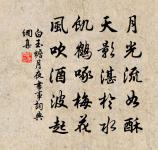 月光流如酥
天影湛於水
飢鶴啄梅花
風吹酒波起
白玉蟾月夜書事詞典
網